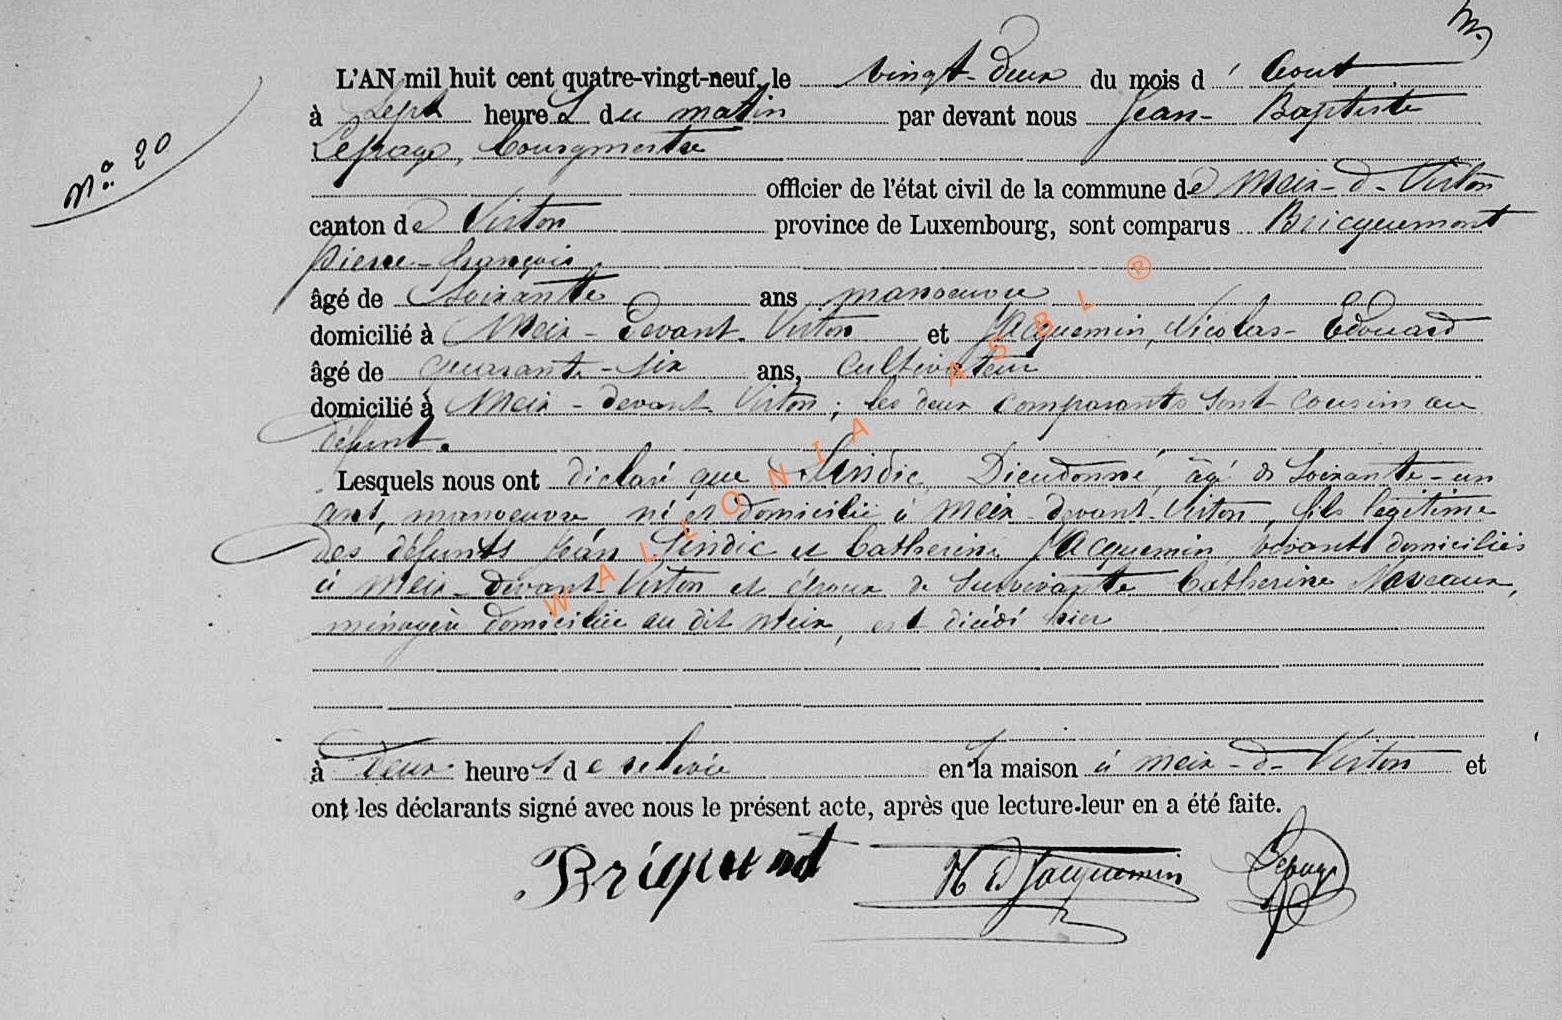 L'AN mil huit cent quatre-vingt-neuf, le vingt-deux du mois d'Aout
à Sept heures du matin par devant nous Jean-Baptiste
Nº 20
Lepage, bourgmestre
officier de l'état civil de la commune de Meix-d-Virton
canton de Virton province de Luxembourg, sont comparus Bricquemont
Pierre-françois,
âgé de Soixante ans manoeuvre
domicilié à Meix-Devant-Virton et Jacquemin, Nicolas-Edouard
âgé de quarante-six ans, Cultivateur
domicilié à Meix-devant Virton; les deux comparants sont cousins au
défunt.
Lesquels nous ont déclaré que Sindic, Dieudonné, âgé de Soixante-un
ans, manoeuvre né et domicilié à Meix-devant-Virton, fils légitime
des défunts Jean Sindic et Catherine Jacquemin vivants domiciliés
à Meix-devant-Virton et époux de survivante Catherine
ménagère domiciliée au dit Meix, est décédé hier
à Deux heures de relevée en sa maison à Meix-d-Virton et
ont les déclarants signé avec nous le présent acte, après que lecture-leur en a été faite.
N E Jacquemin Lepage
WALLONIA ASBL ®